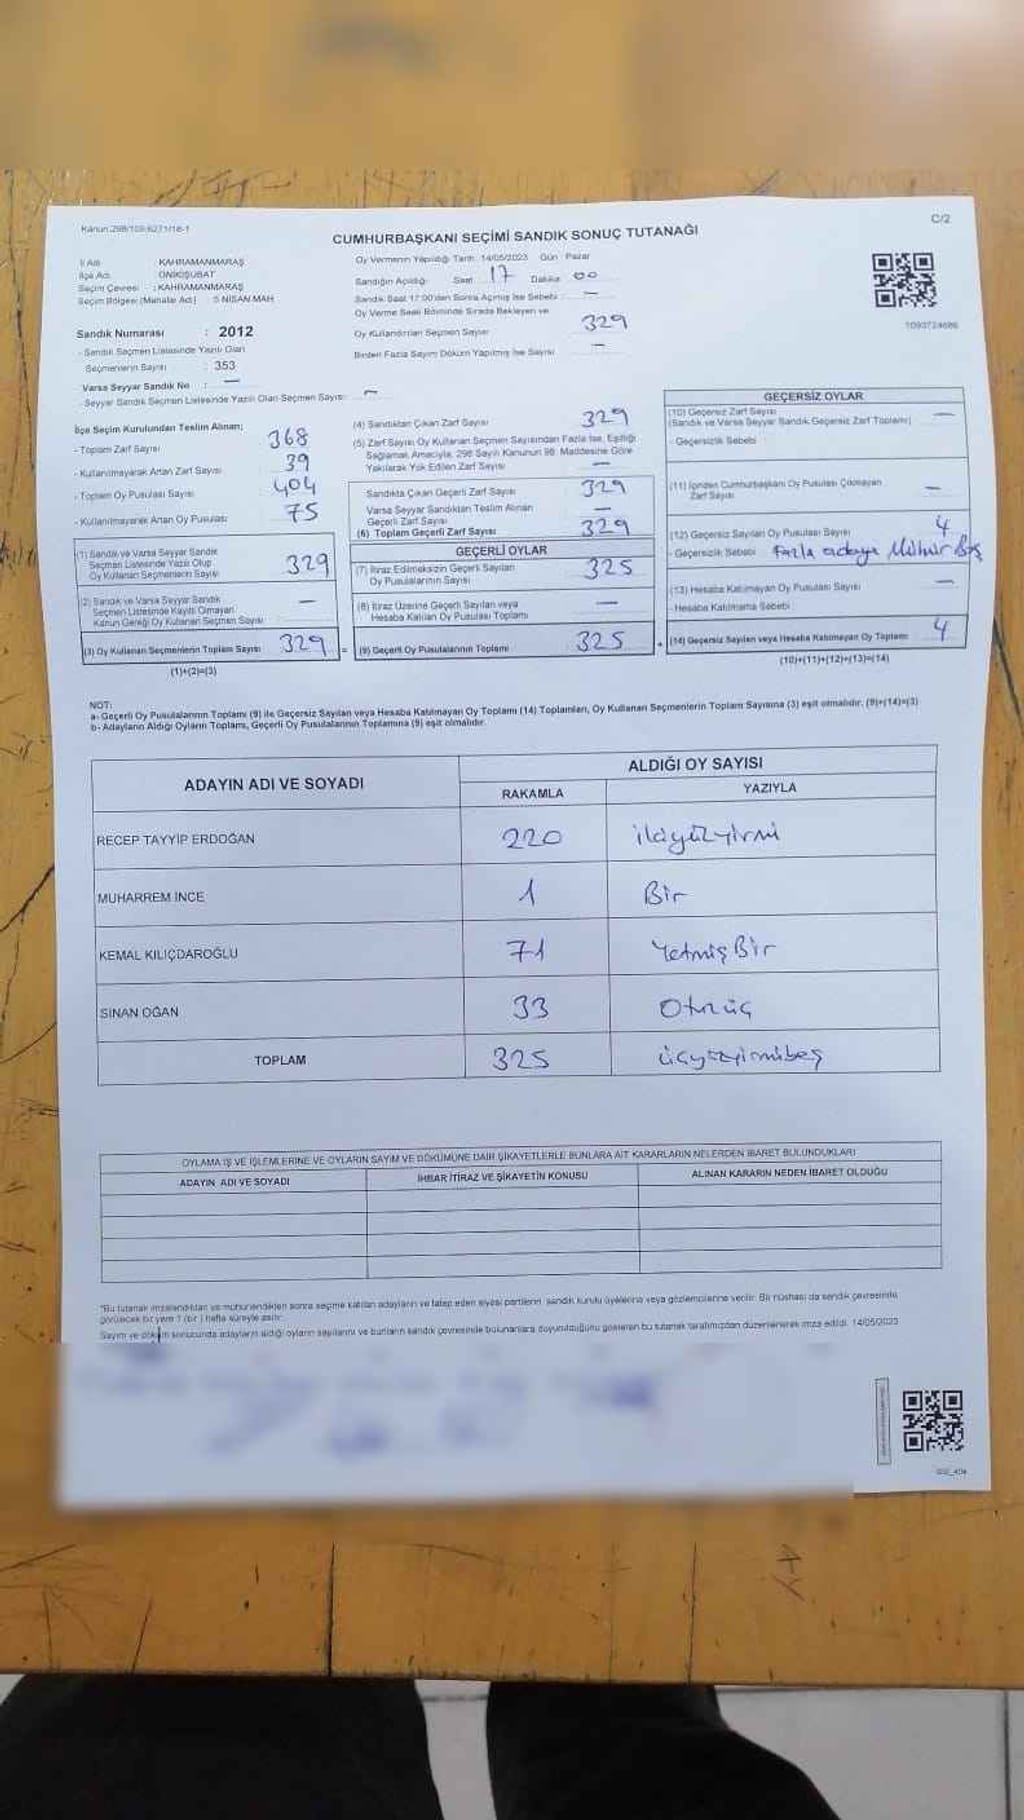 Kanun:298/105-6271/18-1
C/2
CUMHURBAŞKANI SEÇİMİ SANDIK SONUÇ TUTANAĞI
İl Adı KAHRAMANMARAŞ
İlçe Adı ONİKİŞUBAT
Seçim Çevresi : KAHRAMANMARAŞ
Seçim Bölgesi (Mahalle Adı) 5 NİSAN MAH
Sandık Numarası : 2012
- Sandık Seçmen Listesinde Yazılı Olan
Seçmenlerin Sayısı : 353
Varsa Seyyar Sandık No : —
- Seyyar Sandık Seçmen Listesinde Yazılı Olan Seçmen Sayısı: —
Oy Vermenin Yapıldığı Tarih: 14/05/2023 Gün Pazar
Sandığın Açıldığı: Saat 17 Dakika 00
Sandık Saat 17:00'den Sonra Açılmış İse Sebebi : —
Oy Verme Saati Bitiminde Sırada Bekleyen ve
Oy Kullandırılan Seçmen Sayısı 329
Birden Fazla Sayım Döküm Yapılmış İse Sayısı —
1093724686
İlçe Seçim Kurulundan Teslim Alınan;
- Toplam Zarf Sayısı 368
- Kullanılmayarak Artan Zarf Sayısı 39
- Toplam Oy Pusulası Sayısı 404
- Kullanılmayarak Artan Oy Pusulası 75
(1) Sandık ve Varsa Seyyar Sandık
Seçmen Listesinde Yazılı Olup
Oy Kullanan Seçmenlerin Sayısı 329
(2) Sandık ve Varsa Seyyar Sandık
Seçmen Listesinde Kayıtlı Olmayan
Kanun Gereği Oy Kullanan Seçmen Sayısı —
(3) Oy Kullanan Seçmenlerin Toplam Sayısı 329 =
(1)+(2)=(3)
(4) Sandıktan Çıkan Zarf Sayısı 329
(5) Zarf Sayısı Oy Kullanan Seçmen Sayısından Fazla İse, Eşitliği
Sağlamak Amacıyla, 298 Sayılı Kanunun 98. Maddesine Göre
Yakılarak Yok Edilen Zarf Sayısı —
Sandıkta Çıkan Geçerli Zarf Sayısı 329
Varsa Seyyar Sandıktan Teslim Alınan
Geçerli Zarf Sayısı —
(6) Toplam Geçerli Zarf Sayısı 329
GEÇERLİ OYLAR
(7) İtiraz Edilmeksizin Geçerli Sayılan
Oy Pusulalarının Sayısı 325
(8) İtiraz Üzerine Geçerli Sayılan veya
Hesaba Katılan Oy Pusulası Toplamı —
(9) Geçerli Oy Pusulalarının Toplamı 325 +
GEÇERSİZ OYLAR
(10) Geçersiz Zarf Sayısı —
(Sandık ve Varsa Seyyar Sandık Geçersiz Zarf Toplamı)
- Geçersizlik Sebebi
(11) İçinden Cumhurbaşkanı Oy Pusulası Çıkmayan
Zarf Sayısı —
(12) Geçersiz Sayılan Oy Pusulası Sayısı 4
- Geçersizlik Sebebi Fazla adaya Mühür Baş
(13) Hesaba Katılmayan Oy Pusulası Sayısı —
- Hesaba Katılmama Sebebi
(14) Geçersiz Sayılan veya Hesaba Katılmayan Oy Toplamı 4
(10)+(11)+(12)+(13)=(14)
NOT:
a- Geçerli Oy Pusulalarının Toplamı (9) ile Geçersiz Sayılan veya Hesaba Katılmayan Oy Toplamı (14) Toplamları, Oy Kullanan Seçmenlerin Toplam Sayısına (3) eşit olmalıdır. (9)+(14)=(3)
b- Adayların Aldığı Oyların Toplamı, Geçerli Oy Pusulalarının Toplamına (9) eşit olmalıdır.
ADAYIN ADI VE SOYADI
ALDIĞI OY SAYISI
RAKAMLA YAZIYLA
RECEP TAYYİP ERDOĞAN 220 ikiyüzyirmi
MUHARREM İNCE 1 Bir
KEMAL KILIÇDAROĞLU 71 YetmişBir
SİNAN OĞAN 33 Otuzüç
TOPLAM 325 üçyüzyirmibeş
OYLAMA İŞ VE İŞLEMLERİNE VE OYLARIN SAYIM VE DÖKÜMÜNE DAİR ŞİKAYETLERLE BUNLARA AİT KARARLARIN NELERDEN İBARET BULUNDUKLARI
ADAYIN ADI VE SOYADI İHBAR İTİRAZ VE ŞİKAYETİN KONUSU ALINAN KARARIN NEDEN İBARET OLDUĞU
*Bu tutanak imzalandıktan ve mühürlendikten sonra seçime katılan adayların ve talep eden siyasi partilerin sandık kurulu üyelerine veya gözlemcilerine verilir. Bir nüshası da sandık çevresinde
görülecek bir yere 1 (bir) hafta süreyle asılır.
Sayım ve döküm sonucunda adayların aldığı oyların sayılarını ve bunların sandık çevresinde bulunanlara duyurulduğunu gösteren bu tutanak tarafımızdan düzenlenerek imza edildi. 14/05/2023